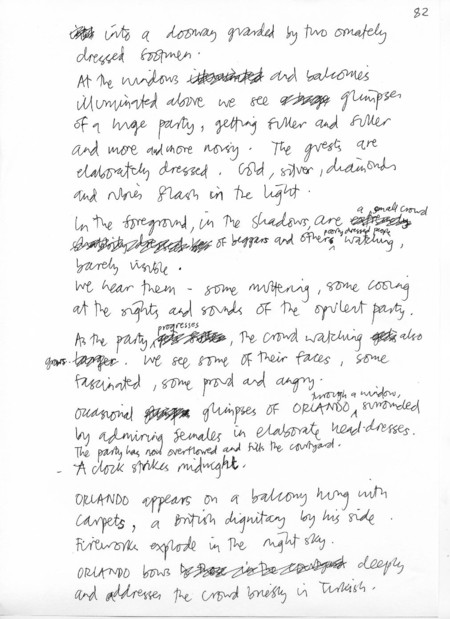 82
into a doorway guarded by two ornately
dressed footmen.
At the windows and balconies
illuminated above we see glimpses
of a huge party, getting fuller and fuller
and more and more noisy. The guests are
elaborately dressed. Gold, silver, diamonds
and rubies flash in the light.
In the foreground, in the shadows, are a small crowd
of beggars and other poorly dressed people watching,
barely visible.
We hear them - some muttering, some cooing
at the sights and sounds of the opulent party.
As the party progresses, the crowd watching also
grows. We see some of their faces, some
fascinated, some proud and angry.
Occasional glimpses of ORLANDO through a window, surrounded
by admiring females in elaborate head-dresses.
The party has now overflowed and fills the courtyard.
- A clock strikes midnight.
ORLANDO appears on a balcony hung with
carpets, a British dignitary by his side.
Fireworks explode in the night sky.
ORLANDO bows deeply
and addresses the crowd briefly in Turkish.